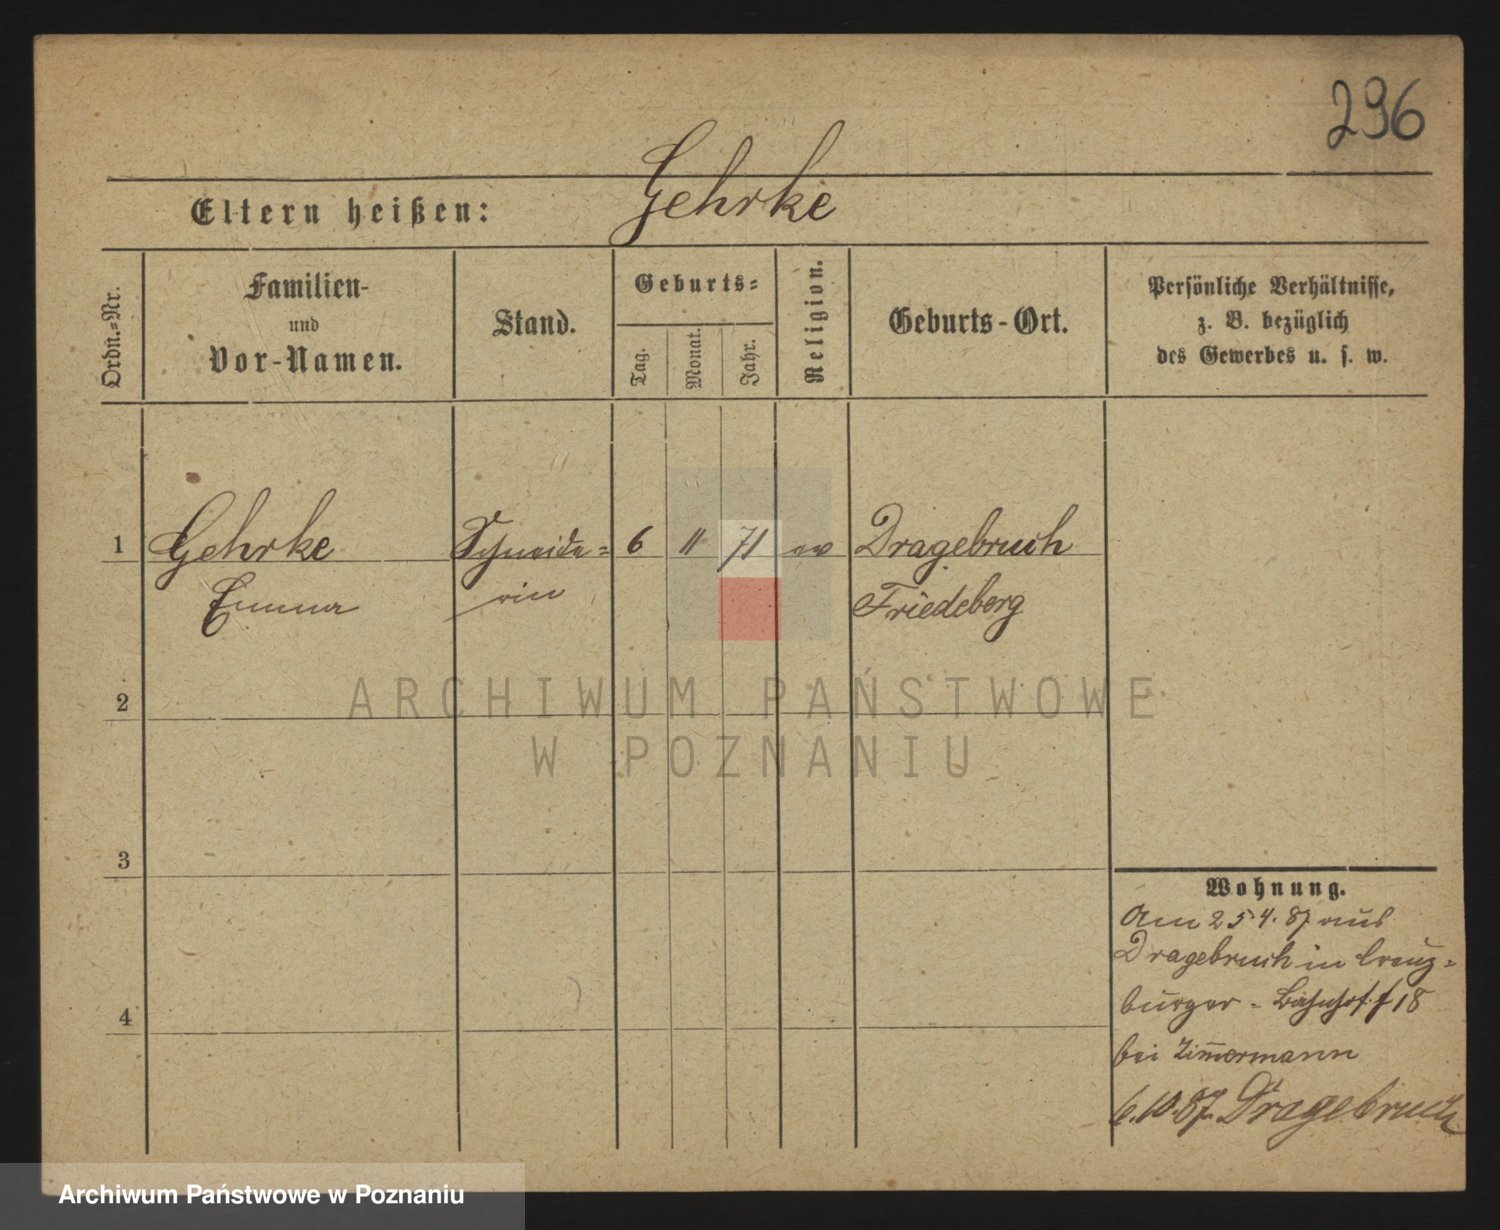 296
Eltern heißen: Gehrke
Ordn.=Nr.
Familien-
und
Vor-Namen.
Stand.
Geburts=
Tag.
Monat.
Jahr.
Religion.
Geburts-Ort.
Persönliche Verhältnisse,
z. B. bezüglich
des Gewerbes u. s. w.
1 Gehrke Schneide= 6 11 71 ev Dragebruch
Emma rin Friedeberg
ARCHIWUM PAŃSTWOWE
W POZNANIU
2
3
4
Wohnung.
Am 25.4.87 aus
Dragebruch in Creuz=
burger - Bahnhof 18
bei Zimmermann
6.10.87. Dragebruch
Archiwum Państwowe w Poznaniu